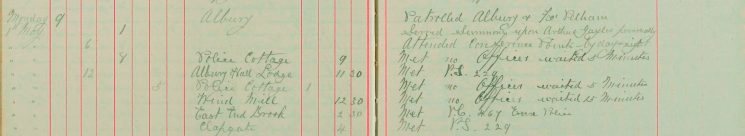 Monday 9 Albury Patrolled Albury & Fx Pelham
1 Served Summons upon Arthur Taylor personally
6 Attended Conference Point by
4 Police Cottage 9 Met no Officer waited 5 Minutes
12 Albury Hall Lodge 11 30 Met P.S. 229
5 Police Cottage 1 Met no Officer waited 5 Minutes
Wind Mill 12 30 Met no Officer waited 5 Minutes
East End Brook 2 30 Met P.C. 467
Clapgate 4 Met P.S. 229